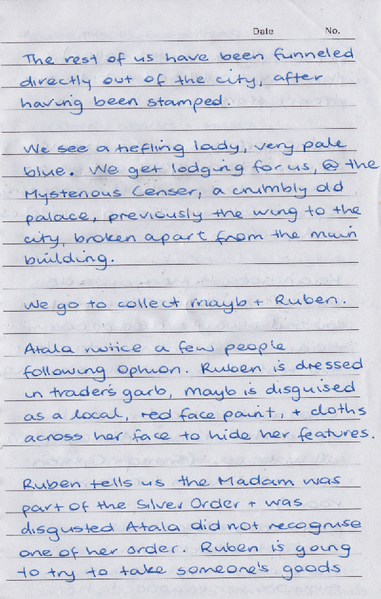 Date No.
The rest of us have been funneled
directly out of the city, after
having been stamped.
We see a tiefling lady, very pale
blue. We get lodging for us, @ the
Mysterious Censer, a crumbly old
palace, previously the wing to the
city, broken apart from the main
building.
We go to collect mayb + Ruben.
Atala notice a few people
following Ophion. Ruben is dressed
in trader's garb, mayb is disguised
as a local, red face paint, + cloths
across her face to hide her features.
Ruben tells us the Madam was
part of the Silver Order + was
disgusted Atala did not recognise
one of her order. Ruben is going
to try to take someone's goods